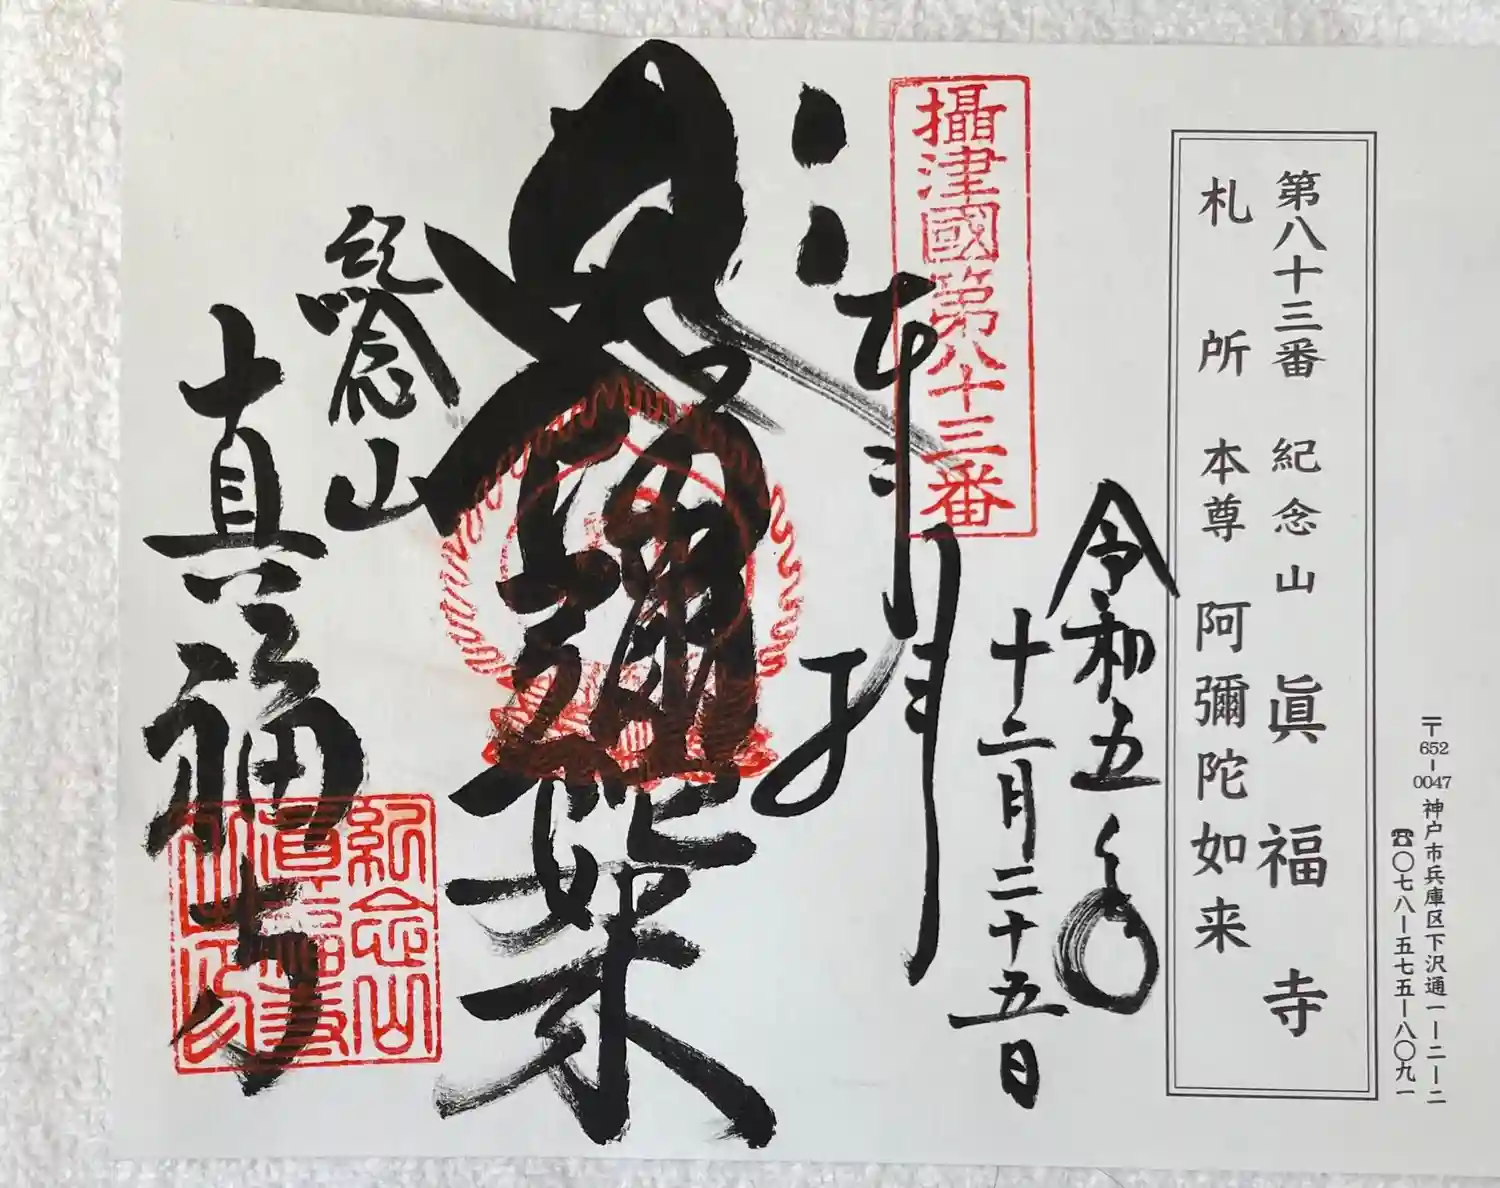 〒652-0047 神戸市兵庫区下沢通一ー二ー二
☎〇七八ー五七五ー八〇九一
第八十三番 紀念山 眞福寺
札所 本尊 阿彌陀如来
令和五年
十二月二十五日
攝津國第八十三番
奉拝
彌陀如来
紀念山
真福寺
紀念山
真福寺